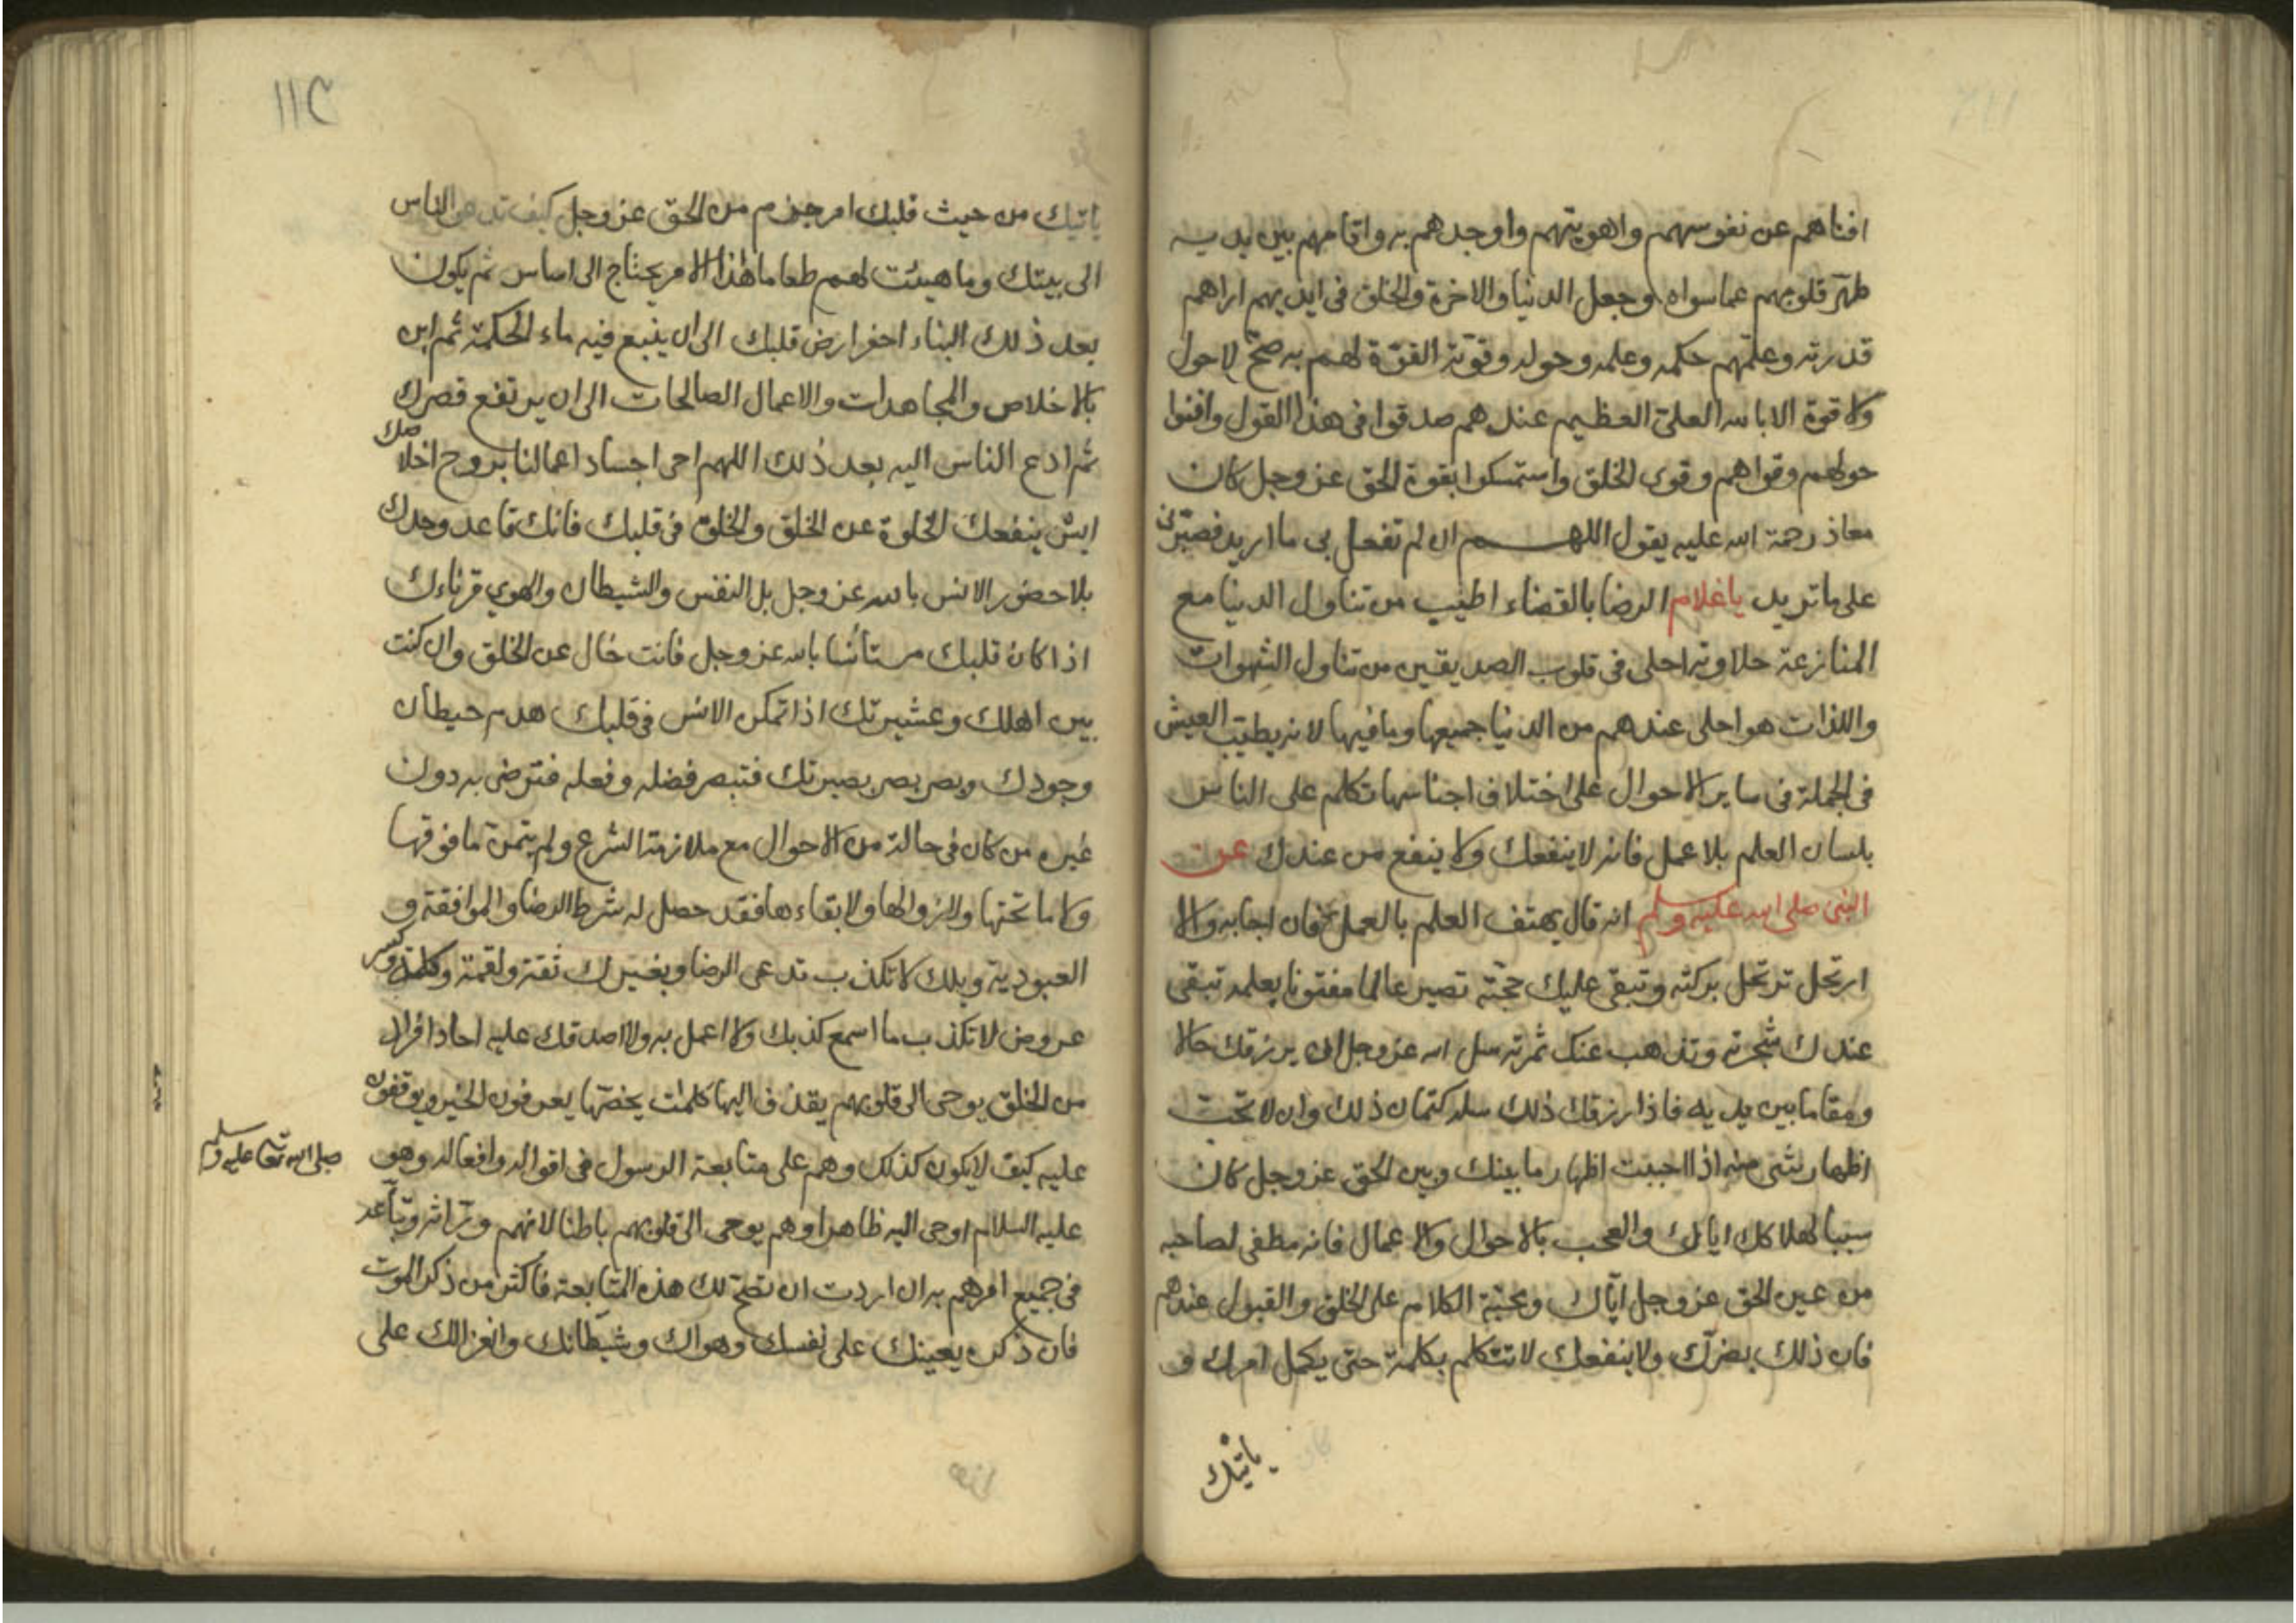 افناهم عن نفوسهم واهويتهم واوجدهم به واقامهم بين يديه
طهّر قلوبهم عما سواه وجعل الدنيا والاخرة والخلق فى ايديهم اراهم
قدرته وعلّمهم حكمه وعلمه وحوله وقوّته القوّة لهم به صحّ لا حول
ولا قوة الا بالله العلىّ العظيم عندهم صدقوا فى هذا القول وافنوا
حولهم وقواهم وقوى الخلق واستمسكوا بقوة الحق عز وجل كان
معاذ رحمة الله عليه يقول اللهم ان لم تفعل بى ما اريد فصبّرنى
على ما تريد ياغلام الرضا بالقضاء اطيب من تناول الدنيا مع
المنازعة حلاوته احلى فى قلوب الصديقين من تناول الشهوات
واللذات هو احلى عندهم من الدنيا جميعها وما فيها لانه يطيّب العيش
فى الجملة فى ساير الاحوال على اختلاف اجناسها تكلم على الناس
بلسان العلم بلا عمل فانه لا ينفعك ولا ينفع من عندك عن
النبى صلى الله عليه وسلم انه قال يهتف العلم بالعمل فان اجابه والا
ارتحل ترتحل بركته وتبقى عليك حجّته تصير عالما مفتونا بعلمه تبقى
عندك شجرته وتذهب عنك ثمرته سل الله عز وجل ان يرزقك حالا
ومقاما بين يديه فاذا رزقك ذلك سله كتمان ذلك وان لا تحب
اظهار شئ منه اذا احببت اظهار ما بينك وبين الحق عز وجل كان
سببا لهلاكك اياك والعجب بالاحوال والاعمال فانه مطغى لصاحبه
من عين الحق عز وجل ايّاك ومحبّة الكلام على الخلق والقبول عندهم
فان ذلك يضرّك ولا ينفعك لا تتكلم بكلمة حتى يكمل امرك و
ياتيك
١١٢
ياتيك من حيث قلبك امر جزم من الحق عز وجل كيف تدعى الناس
الى بيتك وما هيئت لهم طعاما هذا الامر يحتاج الى اساس ثم يكون
بعد ذلك البناء احفر ارض قلبك الى ان ينبع فيه ماء الحكمة ثم ابن
بالاخلاص والمجاهدات والاعمال الصالحات الى ان يرتفع قصرك
ثم ادع الناس اليه بعد ذلك اللهم احى اجساد اعمالنا بروح اخلاصك
ايش ينفعك الخلوة عن الخلق والخلق فى قلبك فانك قاعد وحدك
بلا حضور الانس بالله عز وجل بل النفس والشيطان والهوى قرناءك
اذا كان قلبك مستأنسا بالله عز وجل فانت خال عن الخلق وان كنت
بين اهلك وعشيرتك اذا تمكن الانس فى قلبك هدم حيطان
وجودك وبصر بصر بصيرتك فتبصر فضله وفعله فترضى به دون
غيره من كان فى حالة من الاحوال مع ملازمة الشرع ولم يتمن ما فوقها
ولا ما تحتها ولا زوالها ولا بقاءها فقد حصل له شرط الرضا والموافقة و
العبودية ويلك لا تكذب تدعى الرضا ويغيرك بقة ولقمة وكلمة وكسر
عروض لا تكذب ما اسمع كذبك ولا اعمل به ولا اصدقك عليه احاد افراد
من الخلق يوحى الى قلوبهم يقذف اليها كلمات يخصّها يعرفون الخير ويوقفون
عليه كيف لا يكون كذلك وهم على متابعة الرسول فى اقواله وافعاله وهو
صلى الله تعا عليه وسلم
عليه السلام اوحى اليه ظاهرا وهم يوحى الى قلوبهم باطنا لانهم ورّاثه وتباعه
فى جميع امرهم به ان اردت ان تصح لك هذه المتابعة فاكثر من ذكر الموت
فان ذكره يعينك على نفسك وهواك وشيطانك وانعزالك على